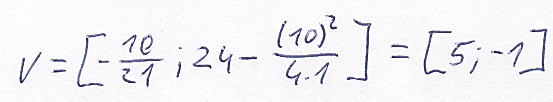 V = [-10/21 ; 24 - (10)²/4.1] = [5; -1]